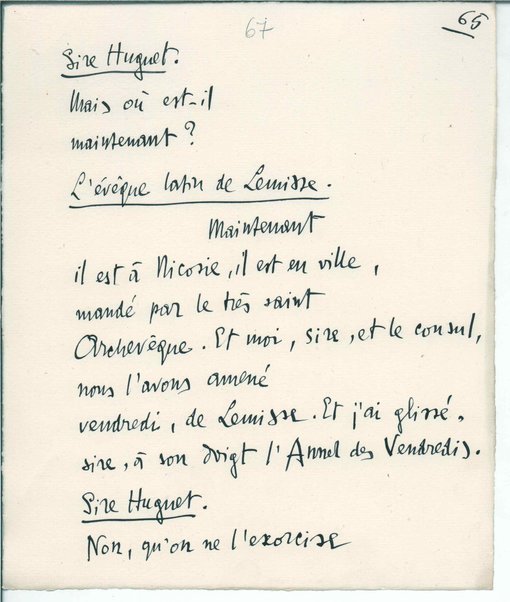 67
65
Sire Huguet.
Mais où est-il
maintenant ?
L'évêque latin de Lemisse.
Maintenant
il est à Nicosie, il est en ville,
mandé par le très saint
Archevêque. Et moi, sire, et le consul,
nous l'avons amené
vendredi, de Lemisse. Et j'ai glissé,
sire, à son doigt l'Annel des Vendredis.
Sire Huguet.
Non, qu'on ne l'exorcise